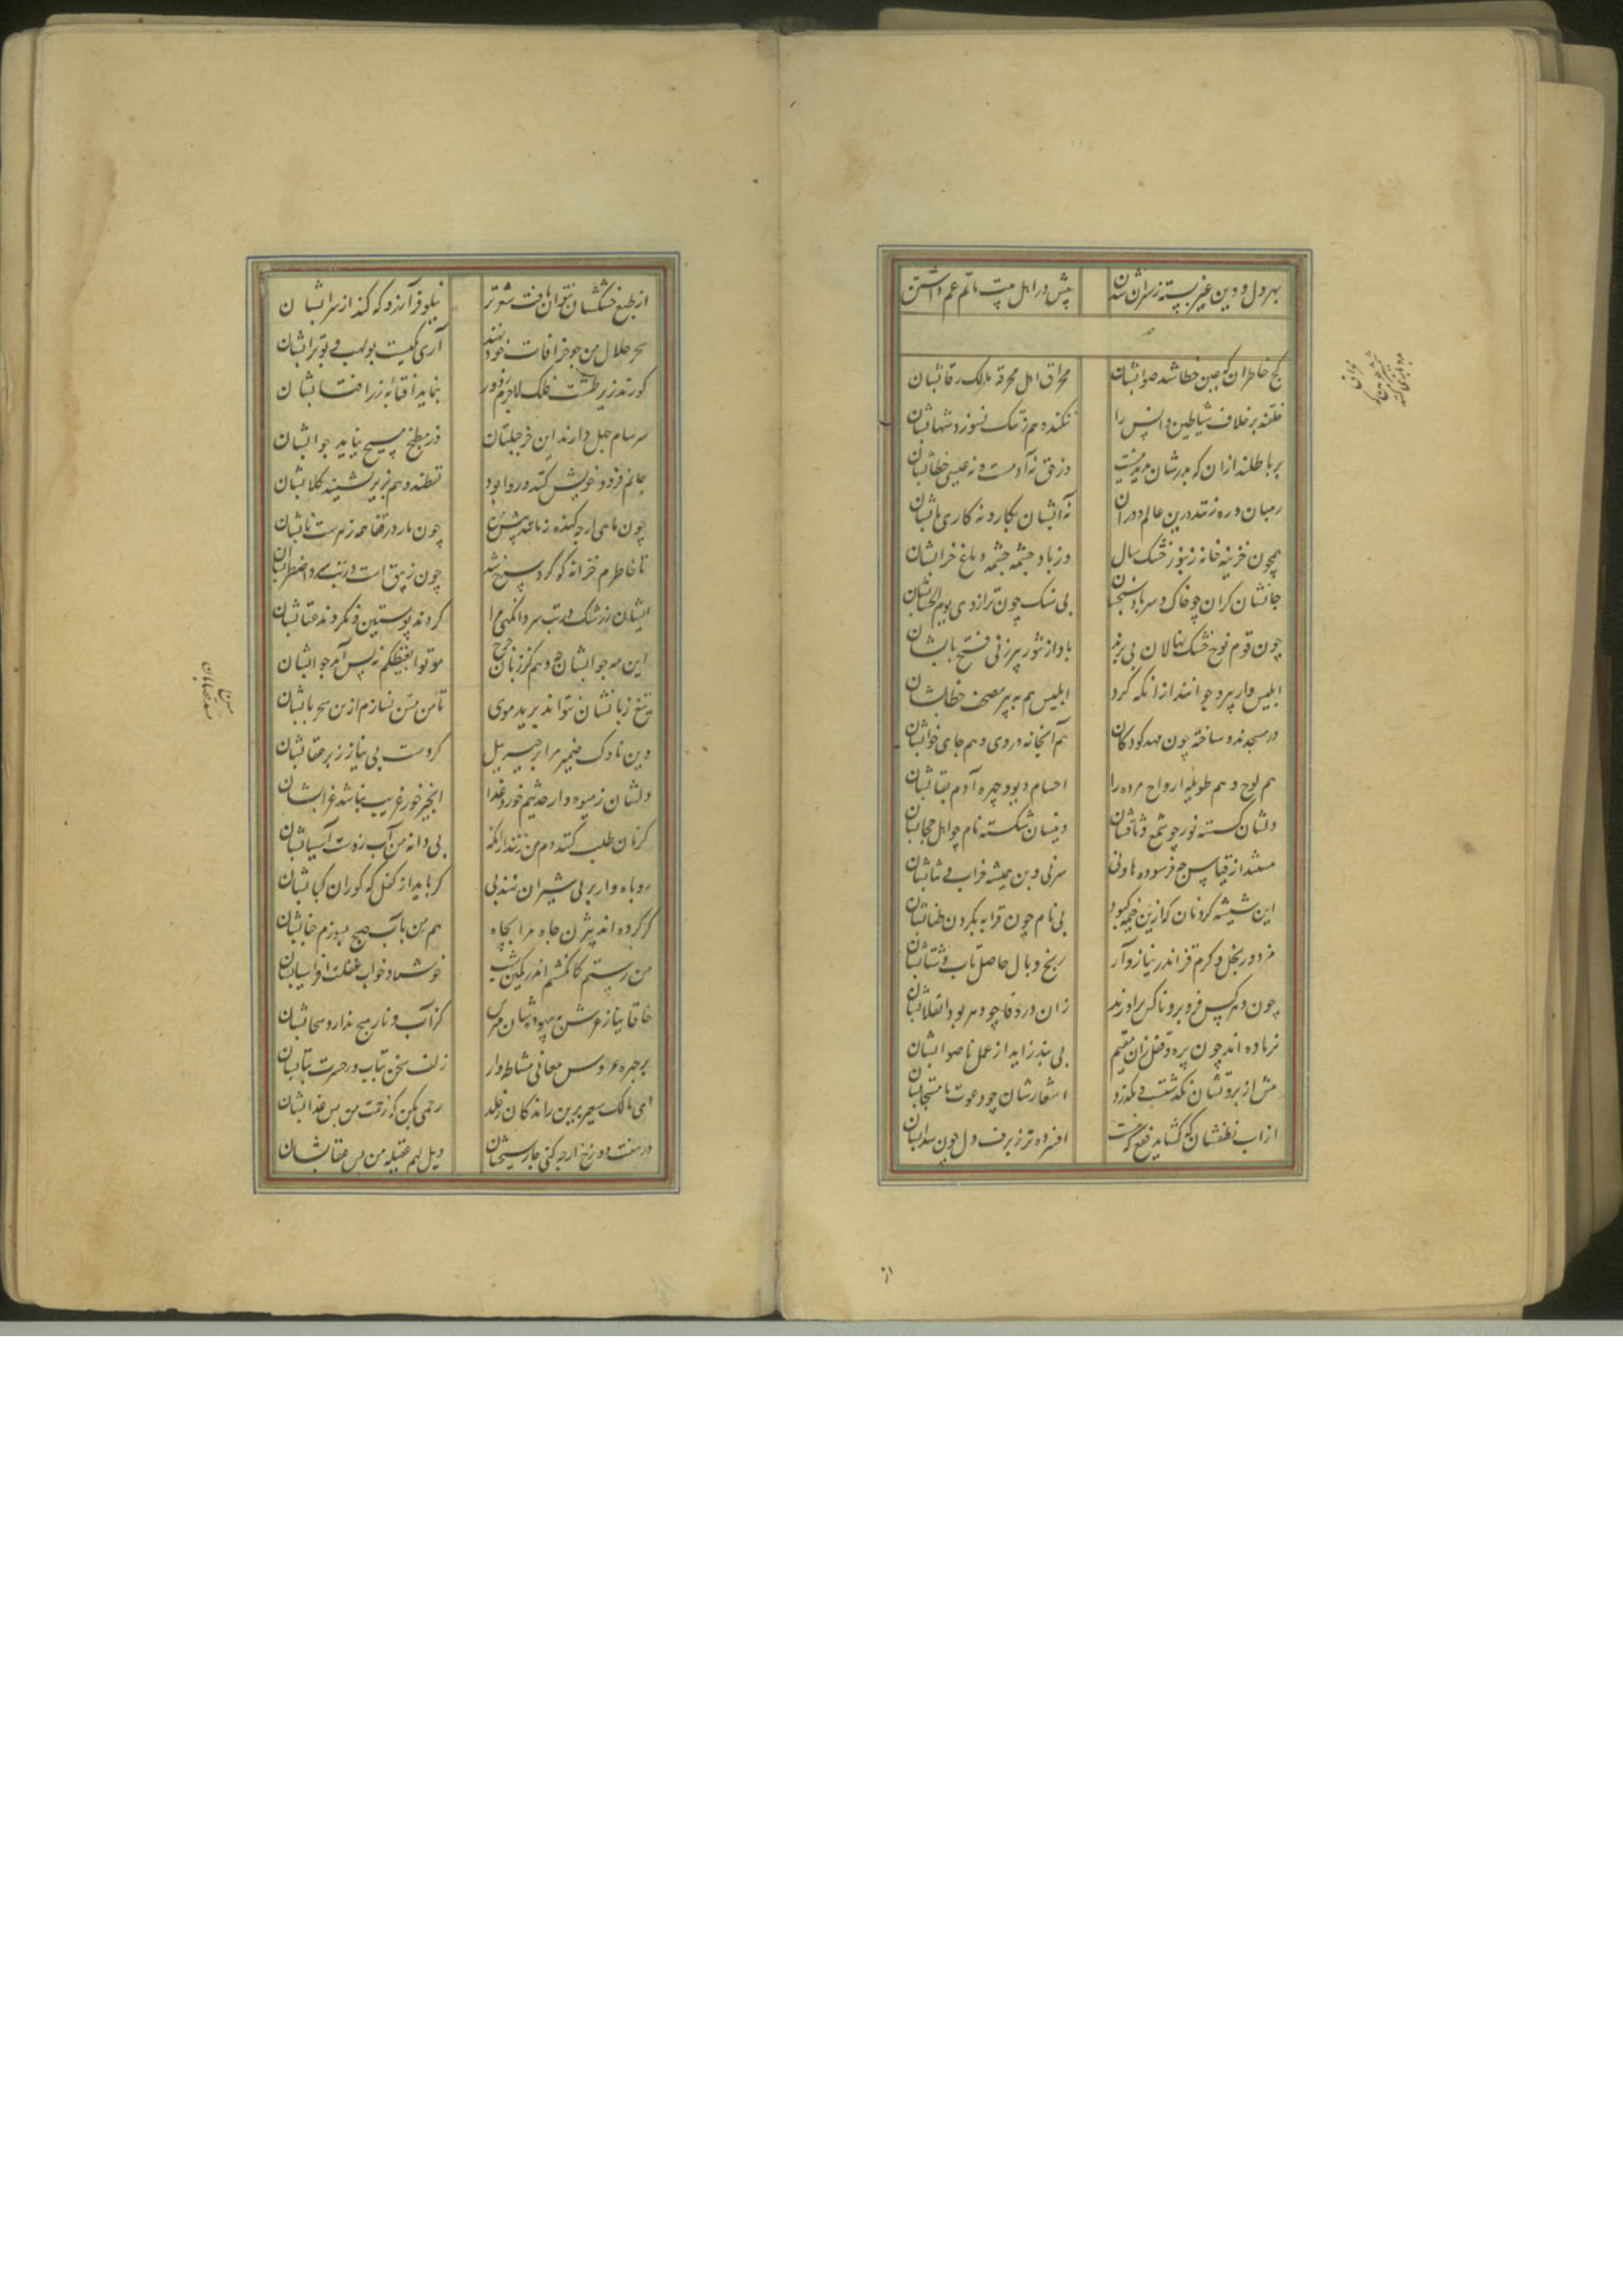 بهر دل دو دین غیر بسته زسران شدن
پیش در اهل بیت ماتم عم داشتن
کج خاطران که عین خطا شد صوابشان
مخراق اهل مخرقه مالک رقابشان
خلقند بر خلاف شیاطین دانس را
نکنند و هم ز سنگ نسوزد شهابشان
بر باطلند از آن که پدرشان پدید نیست
وز حق نه آدمست و نه عیسی خطابشان
رهبان ره زنند درین عالم
نه آبشان بکار و نه کاری بآبشان
همچون خزینه خانه زنبور خشک سال
وز باد چشمه چشمه دماغ خرابشان
جانشان گران چو خاک و سر باد سنجشان
بی سنگ چون ترازوی یوم الحسابشان
چون قوم نوح خشک نهالان بی برند
باد از تنور پیرزنی فتح بابشان
ابلیس وار پیر و جوانند از آنکه کرد
ابلیس هم به پیر مصحف خطابشان
در مسجدند و ساخته چون مهد کودکان
هم آبخانه در وی و هم جای خوابشان
هم لوح و هم طویله ارواح مرده را
اجسام دیو و چهره آدم نقابشان
دلشان گسسته نور چو شمع وثاقشان
دینشان شکسته نام چو اهل حجابشان
مستند از قیاس چو فرسوده هاونی
سر نی و بن همیشه خراب
این شیشه گردنان که ازین خیمه کبود
بی نام چون قرابه بگردن طنابشان
مزدور بخل و کرم قز اندر نیاز و آز
رنج و بال حاصل تاب و شتابشان
چون دهر کس فرو برو ناکس برآورند
زان در وفا چو دهر بود انقلابشان
نر ماده اند چون پره و قفل زان مقیم
بی بند زاید از عمل ناصوابشان
مش از بروتشان نگذشت و نگذرد
اشعارشان چو دعوت نامستجابشان
از آب نطقشان که گشاید فقع که هست
افسرده تر ز برف دل چون سدابشان
از
از طبع خشکشان نتوان یافت شعر تر
نیلوفر آرزو که کند از سرابشان
سحر حلال من چو خرافات خود نهند
آری یکیست بولهب و بوترابشان
کورند زیر طشت فلک لاجرم ز دور
بنماید آفتابه زر آفتابشان
سرسام جهل دارند این خر جبلتان
وز مطبخ مسیح نیاید جوابشان
جانم فرود خویش کنند و روا بود
نقطند و هم زبر نشینند کلابشان
چون ماهی ارچه کنده زبانند پیش من
چون مار در قفا همه زهرست نابشان
تا خاطرم خزانه گوگرد سرخ شد
چون زیبق است در تب سرد اضطرابشان
ایشان ز رشک در تب سرد آنگهی مرا
کردند پوستین و نکردند عتابشان
این مه جوابشان دهم کز زبان
موتوا بغیظکم نه پس آمد جوابشان
تیغ زبانشان نتواند برید موی
تا من مسن نسازم ازین سحر نابشان
وین ناوک ضمیر مرا پر جبرییل
کردست بی نیاز ز پر عقابشان
دلشان ز میوه دار حدیثم خورد غذا
انجیر خور غریب نباشد غرابشان
گر نان طلب کنند دم من زنند از آنکه
بی دانه من آب زدست آسیابشان
روباه وار بر پی شیران نهند پی
گر باید از کفل که گوران کبابشان
گر کرده اند بیژن جاه مرا بچاه
هم من بآب صبح بسوزم جنابشان
من رستم کمان کشم اندر کمین شب
خوش باد خواب غفلت افراسیابشان
خاقانیا ز غرش بیهوده شان مترس
کز آب و نار هیچ ندارد سحابشان
بر چهره عروس معانی مشاطه وار
زلف سخن بتاب و ز حسرت بتابشان
ای مالک سعیر برین راندگان خلد
رحمی مکن که زحمت من بس عذابشان
در هفت دوزخ ار چه کنی چار میخشان
ویل لهم عقیله من بس عقابشان